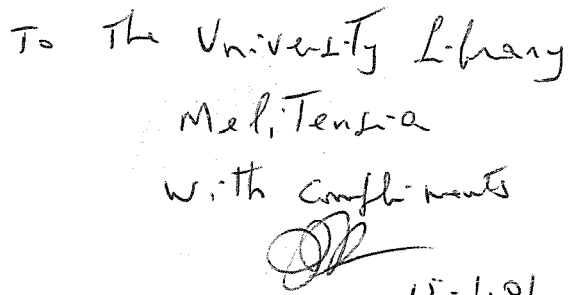 To The University Library
Melitensia
with compliments
15-1.01